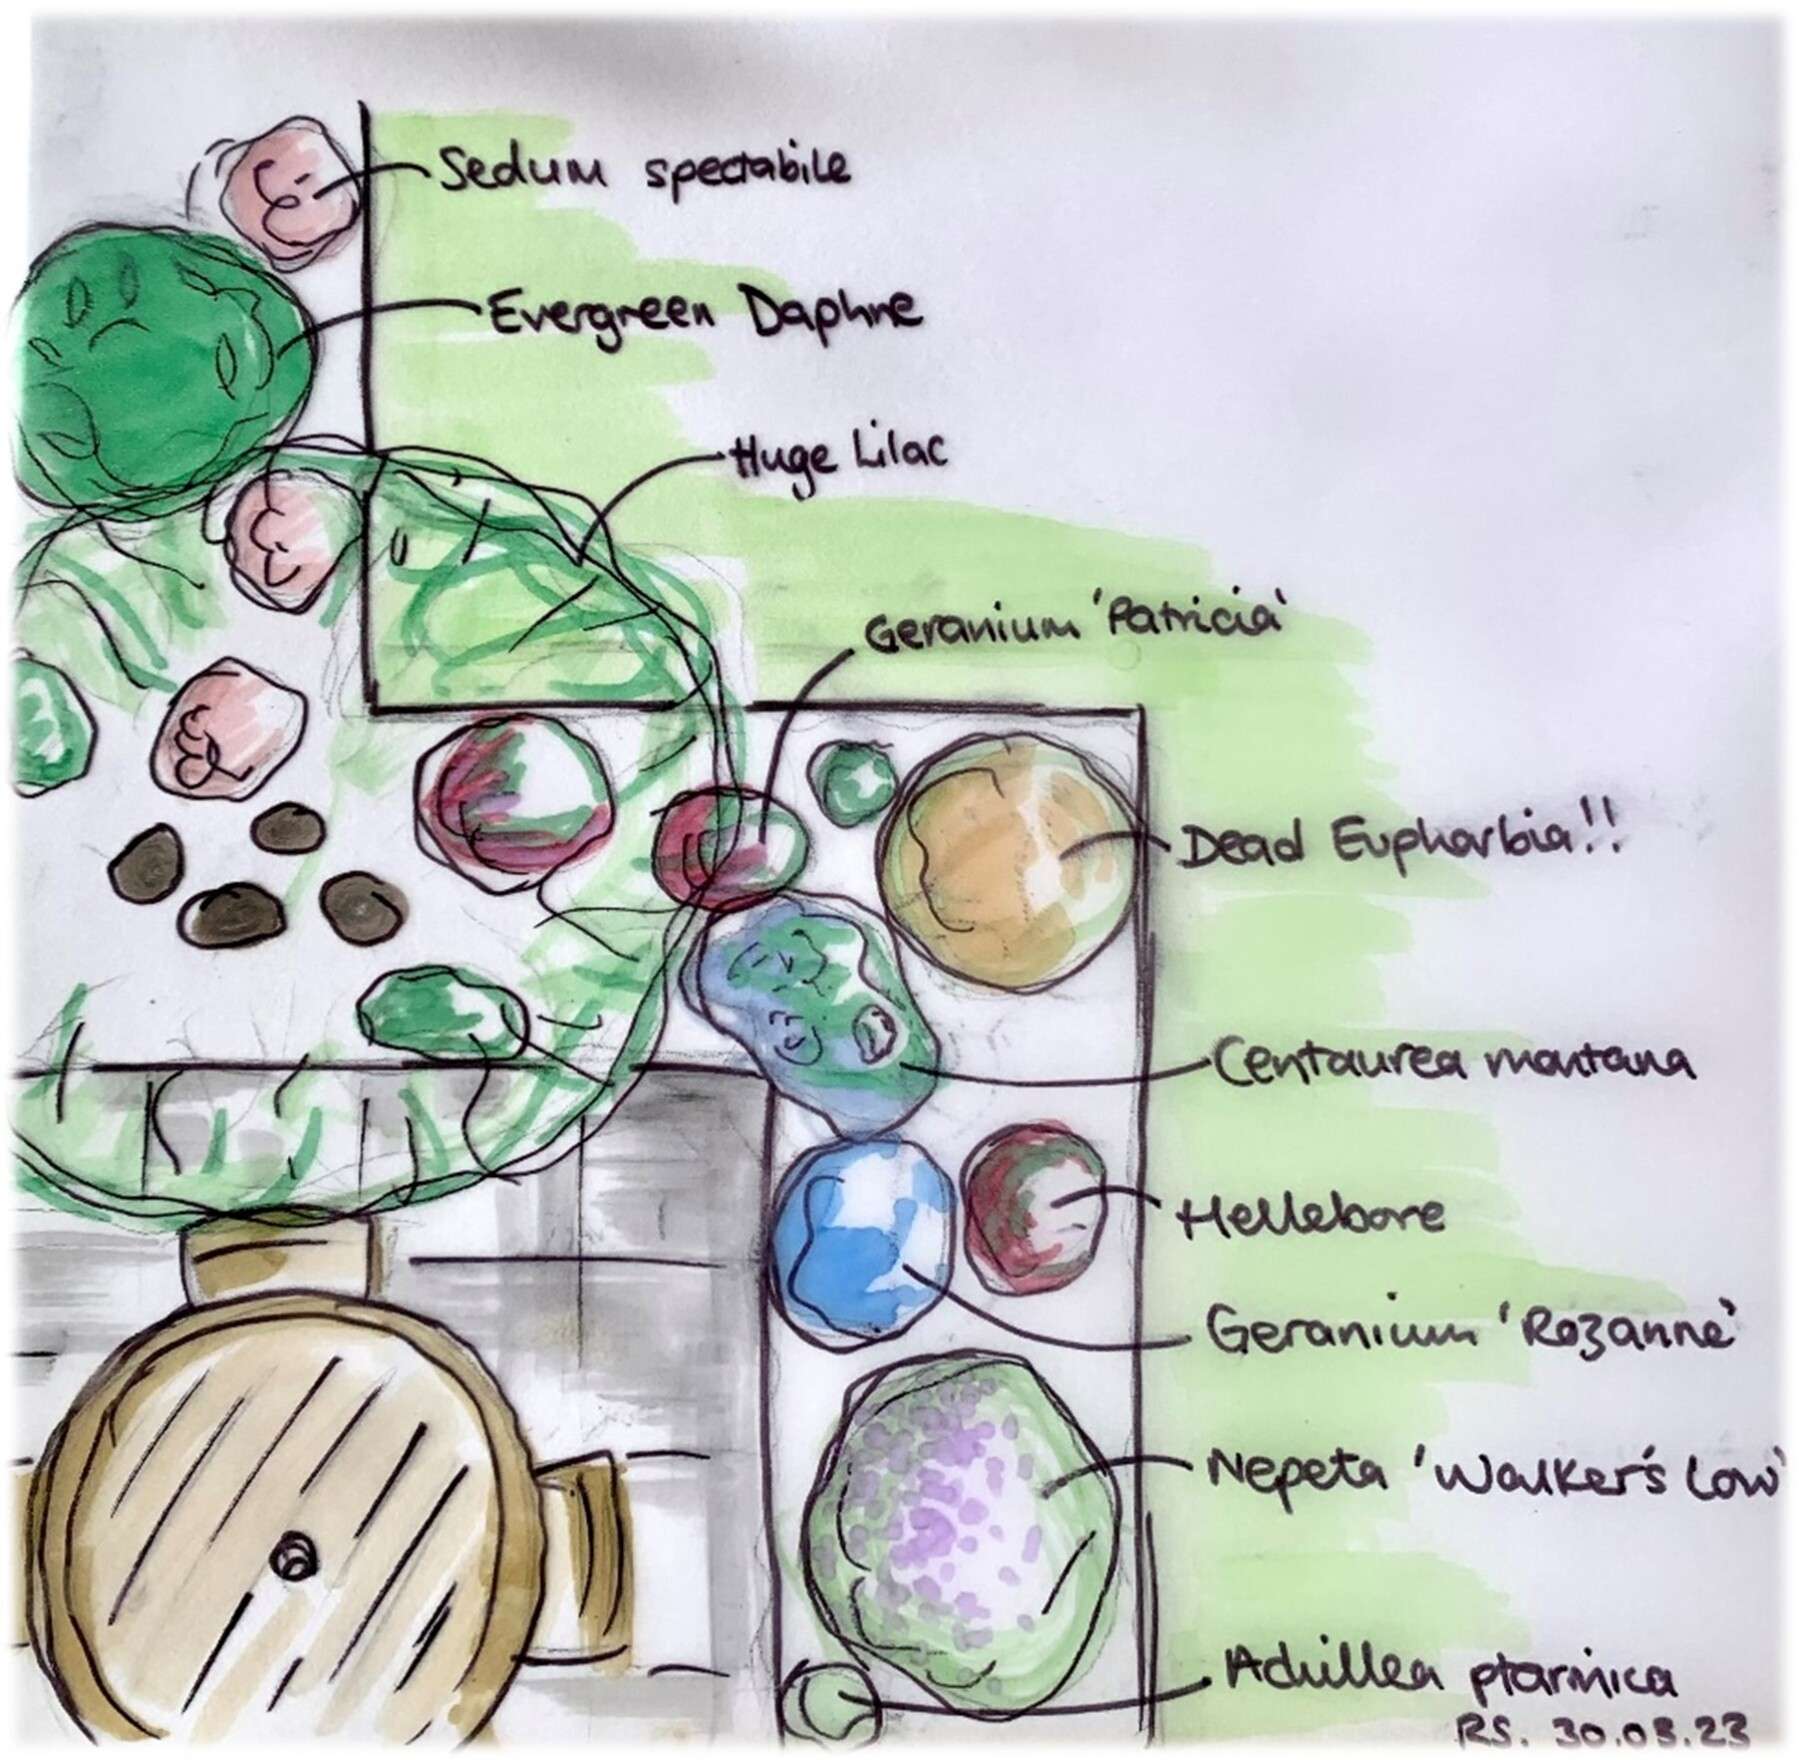 Sedum spectabile
Evergreen Daphne
Huge Lilac
Geranium 'Patricia'
Dead Euphorbia!!
Centaurea montana
Hellebore
Geranium 'Rozanne'
Nepeta 'Walker's Low'
Achillea ptarmica
RS. 30.03.23